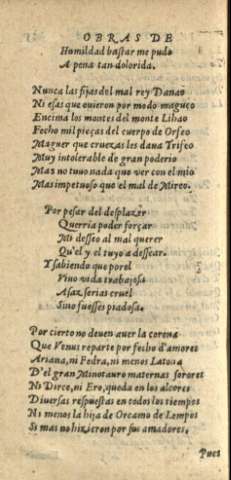 OBRAS DE
Humildad bastar me pudo
A pena tan dolorida.
Nunca las fijas del mal rey Danao
Ni esas que ouieron por modo maguco
Encima los montes del monte Libao
Fecho mil pieças del cuerpo de Orfeo
Maguer que cruezas les daua Trifeo
Muy intolerable de gran poderio
Mas no tuuo nada que ver con el mio
Mas impetuoso que el mal de Mireo.
Por pesar del desplazir
Querria poder forçar
Mi desseo al mal querer
Qu'el y el tuyo a dessear.
Y sabiendo que por el
Viuo vida trabajosa
Asaz serias cruel
Sino fuesses piadosa.
Por cierto no deuen auer la corona
Que Venus reparte por fecho d'amores
Ariana, ni Fedra, ni menos Latona
D'el gran Minotauro maternas sorores
Ni Dirce, ni Ero, queda en los alcores
Diuersas respuestas en todos los tiempos
Ni menos la hija de Orcamo de Lempos
Si mas no hizieron por sus amadores.
Pues